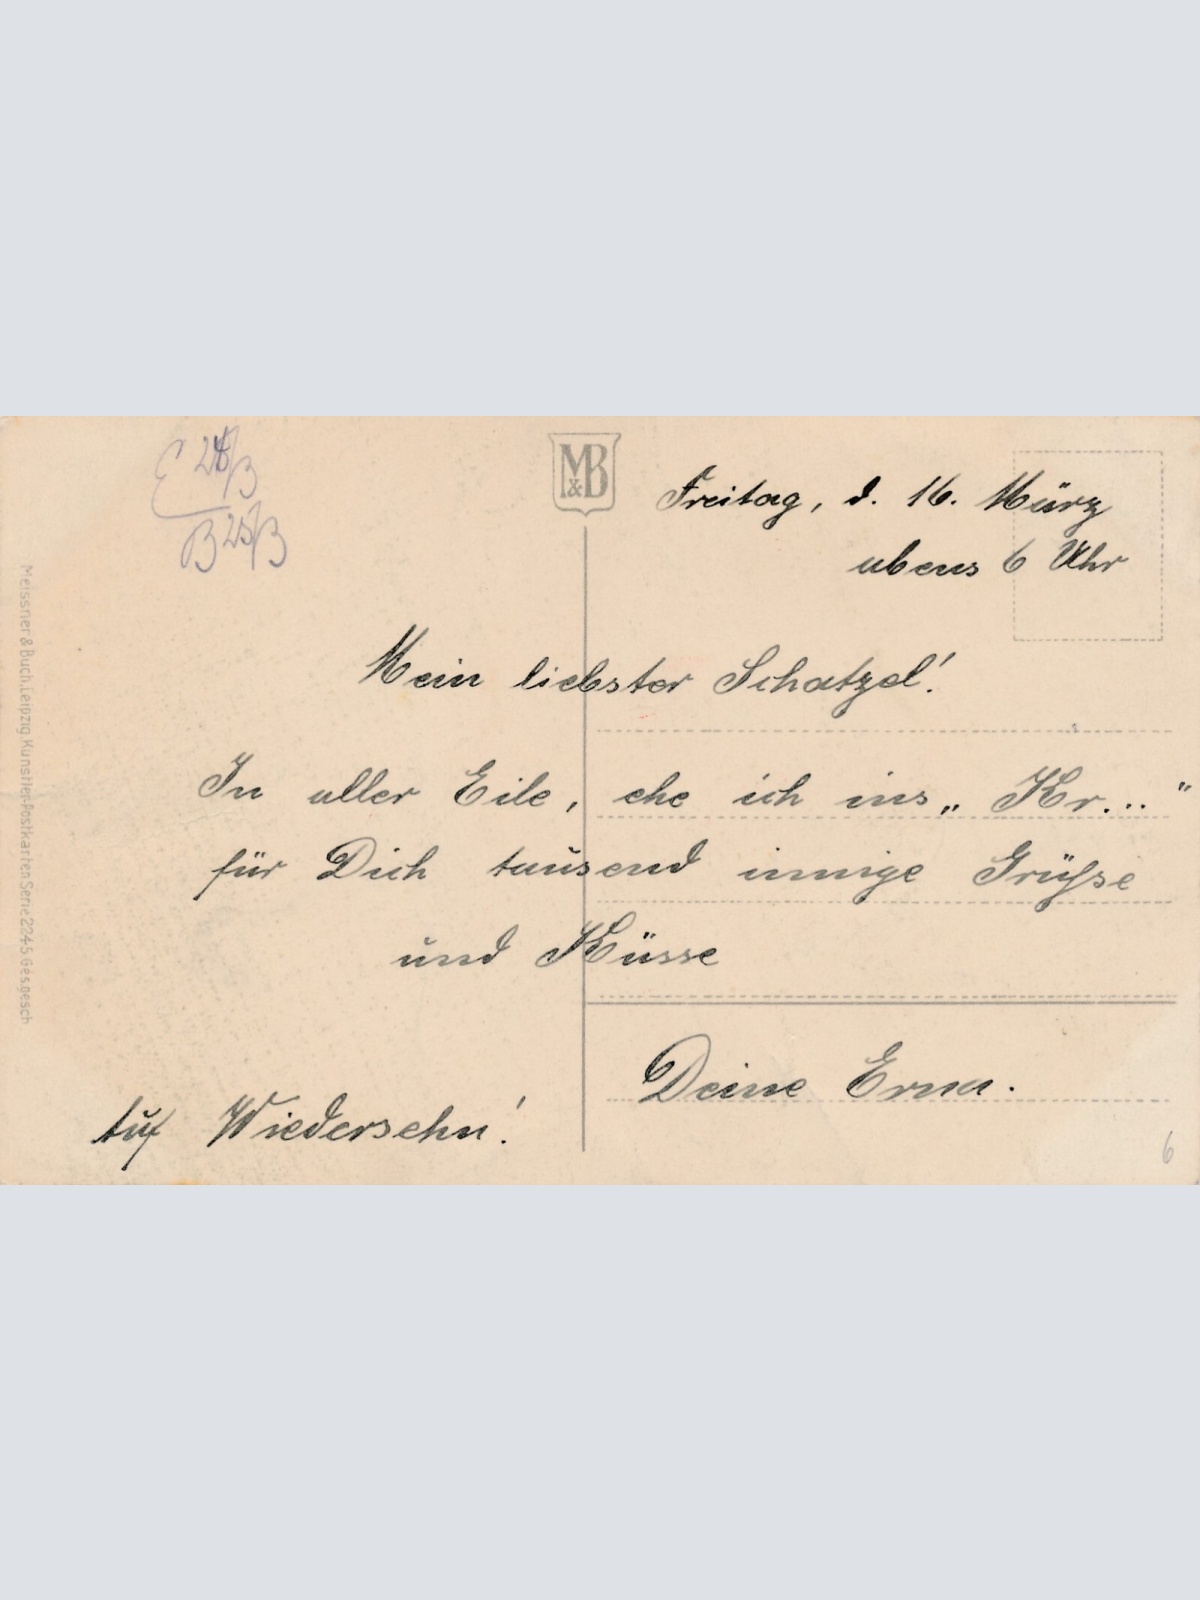 E 24/3
B 25/3
M&B
Freitag, d. 16. März
abens 6 Uhr
Mein liebster Schatzel!
In aller Eile, ehe ich ins „Kr..."
für Dich tausend innige Grüße
und Küsse
Deine Erna.
Auf Wiedersehn!
6
Meissner & Buch, Leipzig Künstler-Postkarten Serie 2245 Ges.gesch